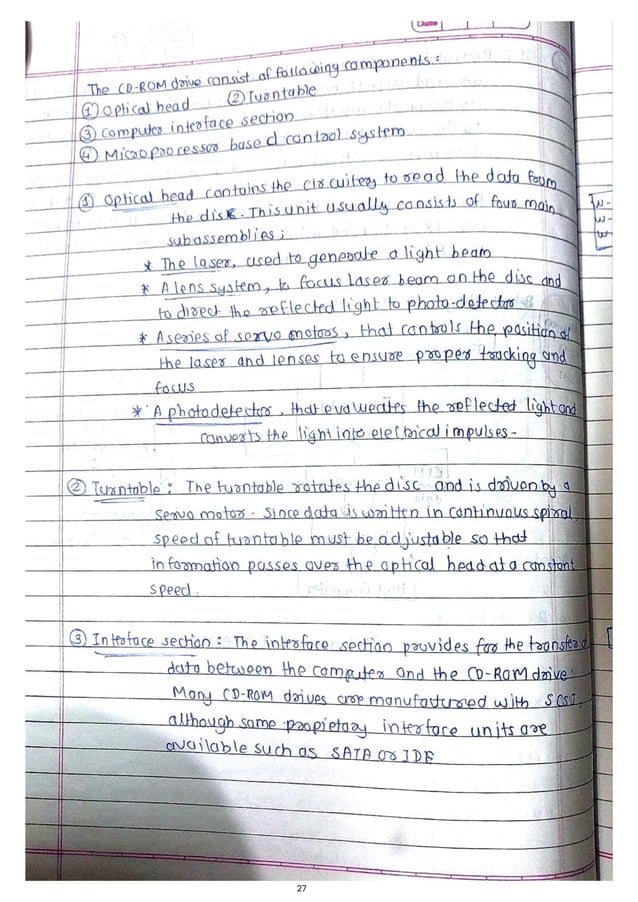 Date
The CD-ROM drive consist of following components:
① Optical head ② Turntable
③ Computer interface section
④ Microprocessor based control system
① Optical head contains the circuitery to read the data from
the disk. This unit usually consists of four main
subassemblies;
* The laser, used to generate a light beam
* A lens system, to focus laser beam on the disc and
to direct the reflected light to photo-detector
* A series of servo motors, that controls the position of
the laser and lenses to ensure proper tracking and
focus
* A photodetector, that evaluates the reflected light and
converts the light into electrical impulses-
② Turntable: The turntable rotates the disc and is driven by a
servo motor- Since data is written in continuous spiral,
speed of turntable must be adjustable so that
information passes over the optical head at a constant
speed.
③ Interface section: The interface section provides for the transfer of
data between the computer and the CD-ROM drive.
Many CD-ROM drives are manufactured with SCSI,
although some propietary interface units are
available such as SATA or IDE
27